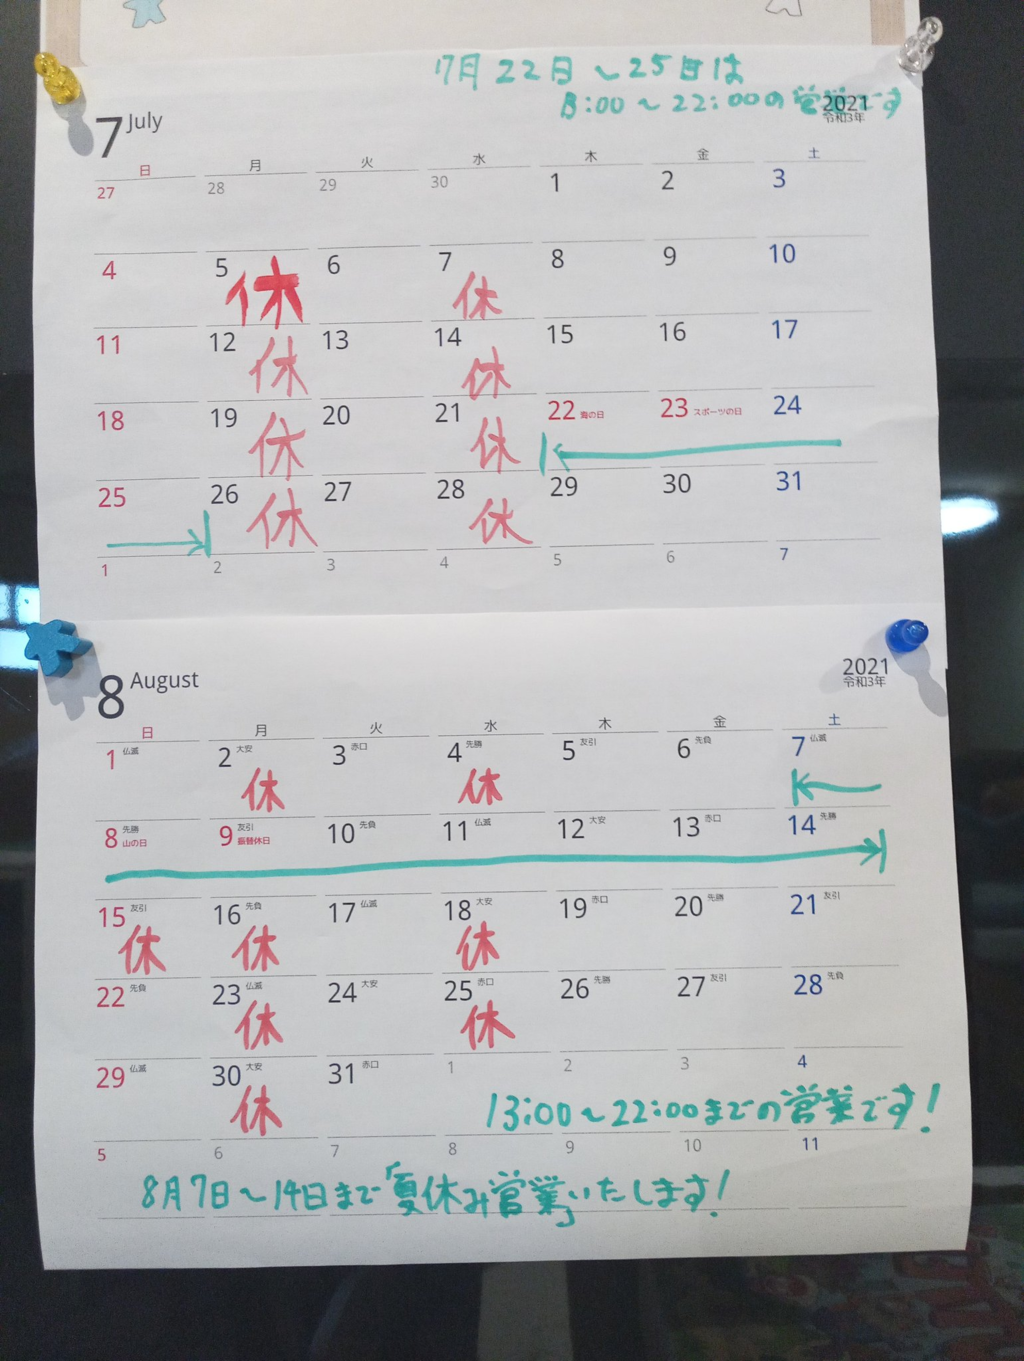 7月22日〜25日は
13:00〜22:00の営業です
7 July
2021
令和3年
日 月 火 水 木 金 土
27 28 29 30 1 2 3
4 5 6 7 8 9 10
休 休
11 12 13 14 15 16 17
休 休
18 19 20 21 22 海の日 23 スポーツの日 24
休 休
25 26 27 28 29 30 31
休 休
1 2 3 4 5 6 7
8 August
2021
令和3年
日 月 火 水 木 金 土
1 仏滅 2 大安 3 赤口 4 先勝 5 友引 6 先負 7 仏滅
休 休
8 先勝 山の日 9 友引 振替休日 10 先負 11 仏滅 12 大安 13 赤口 14 先勝
15 友引 16 先負 17 仏滅 18 大安 19 赤口 20 先勝 21 友引
休 休 休
22 先負 23 仏滅 24 大安 25 赤口 26 先勝 27 友引 28 先負
休 休
29 仏滅 30 大安 31 赤口 1 2 3 4
休
13:00〜22:00までの営業です!
5 6 7 8 9 10 11
8月7日〜14日まで「夏休み営業」いたします!